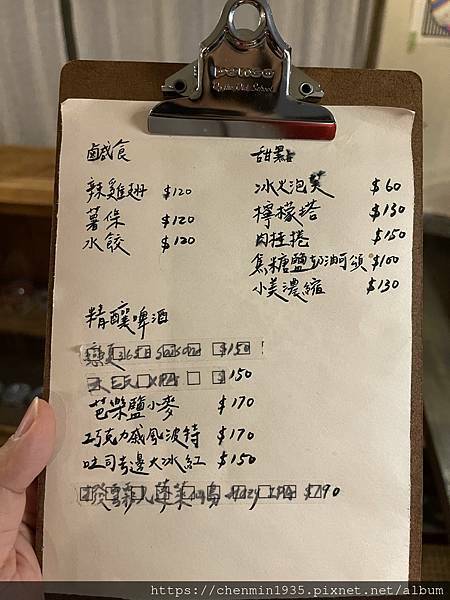 鹹食
辣雞翅 $120
薯條 $120
水餃 $120
甜點
冰火泡芙 $60
檸檬塔 $130
肉桂捲 $150
焦糖鹽奶油可頌 $100
小美濃縮 $130
精釀啤酒
$150
$150
芭樂鹽小麥 $170
巧克力威風波特 $170
吐司去邊大冰紅 $150
$190
https://chenmin1935.pixnet.net/album